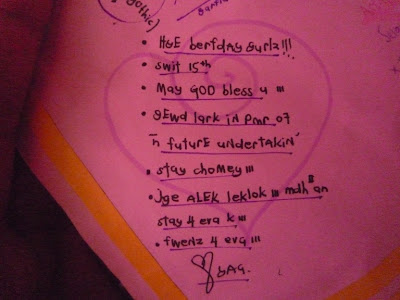 gothic)
• H&E berfdAy gurlz!!!
• swit 15th
• May GOD bless u !!!
• gEwd lark iN pmr 07
n future undertakin'
• stay chomey !!!
• Jge ALEK leklok !!! mdh"an
stay 4 eva k !!!
• fwenz 4 eva !!!
bAG.